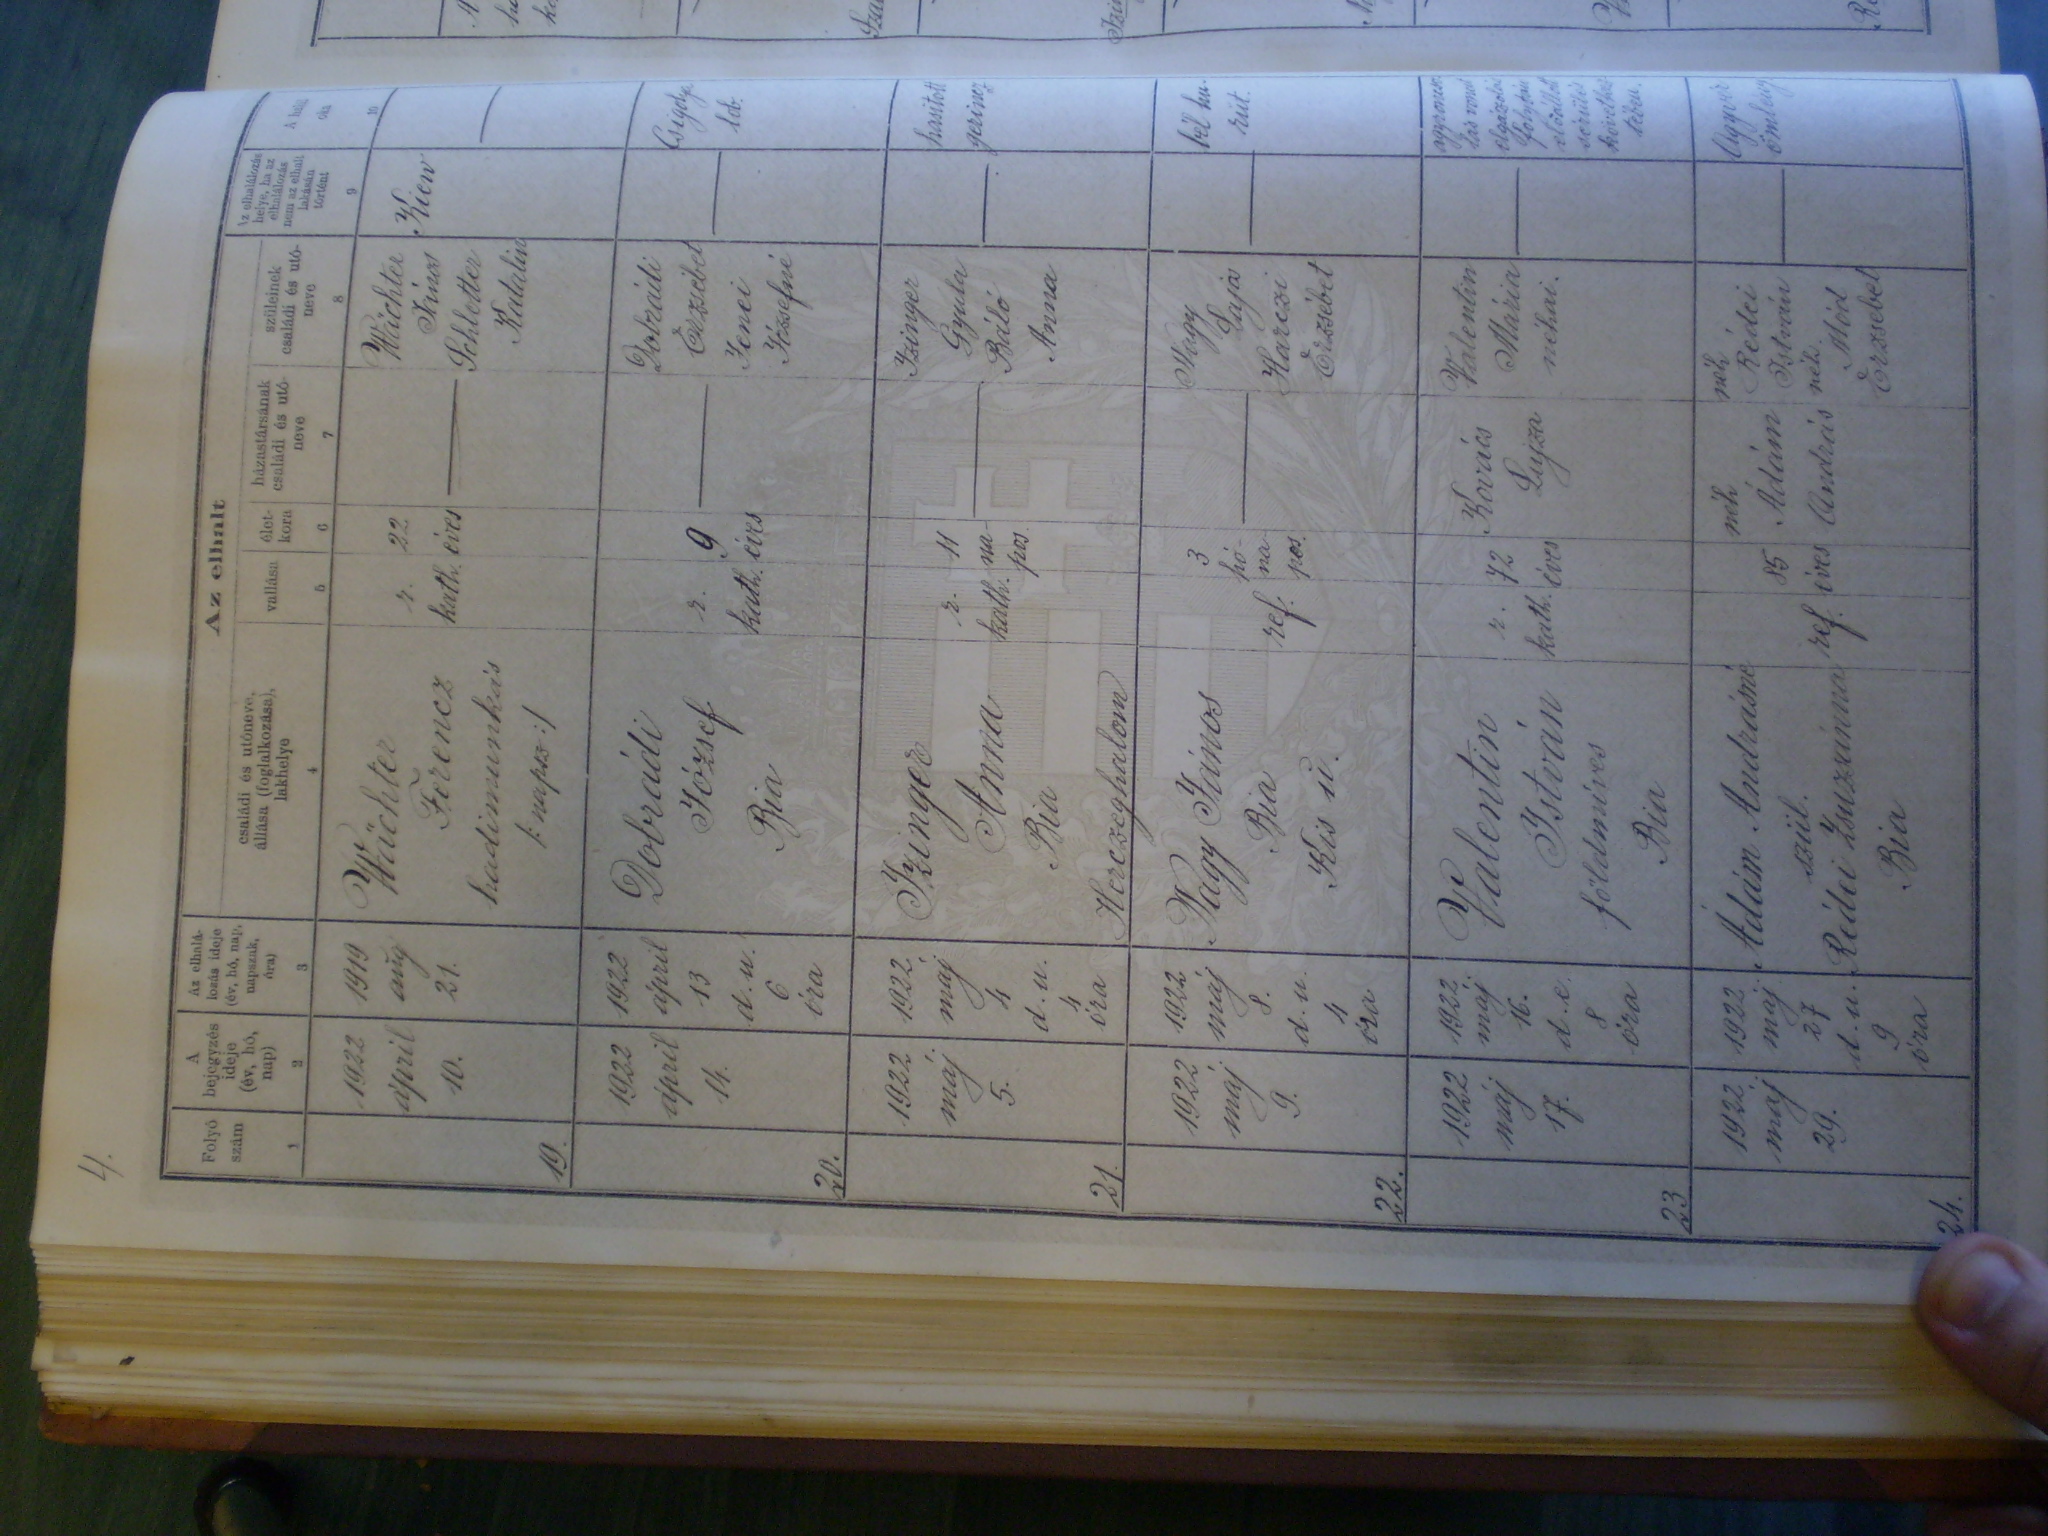 4.
Az elhalt
Folyó
szám
A
bejegyzés
ideje
(év, hó,
nap)
Az elhalá-
lozás ideje
(év, hó, nap,
napszak,
óra)
családi és utóneve,
állása (foglalkozása),
lakhelye
vallása
élet-
kora
házastársának
családi és utó-
neve
szüleinek
családi és utó-
neve
Az elhalálozás
helye, ha az
elhalálozás
nem az elhalt
lakásán
történt
A halál
oka
1
2
3
4
5
6
7
8
9
10
19.
1922
április
10.
1919
aug
21.
Wächter
Ferencz
hadimunkás
/:napsz:/
r.
kath.
22
éves
Wächter
János
Schlotter
Katalin
Kiew
20.
1922
április
14.
1922
április
13
d. u.
6
óra
Dobrádi
József
Bia
r.
kath.
9
éves
Dobrádi
Erzsébet
Jenei
Józsefné
Csigolya
lob.
21.
1922
máj
5.
1922
máj
4
d. u.
4
óra
Izinger
Anna
Bia
Herczeghalom
r.
kath.
11
na-
pos
Izinger
Gyula
Báló
Anna
hasított
gerincz
22.
1922
máj
9.
1922
máj
8.
d. u.
4
óra
Nagy János
Bia
Kis u.
ref.
3
hó-
na-
pos.
Nagy
Lajos
Harczi
Erzsébet
bél hu-
rut.
23
1922
máj
17.
1922
máj.
16.
d. e.
8
óra
Valentin
István
földmíves
Bia
r.
kath.
72
éves
Kovács
Lujza
Valentin
Mária
néhai.
24.
1922
máj
29.
1922
máj
27
d. u.
9
óra
Ádám Andrásné
szül.
Rédei Zsuzsánna
Bia
ref.
85
éves
néh
Ádám
András
néh
Rédei
István
néh.
Mód
Erzsébet